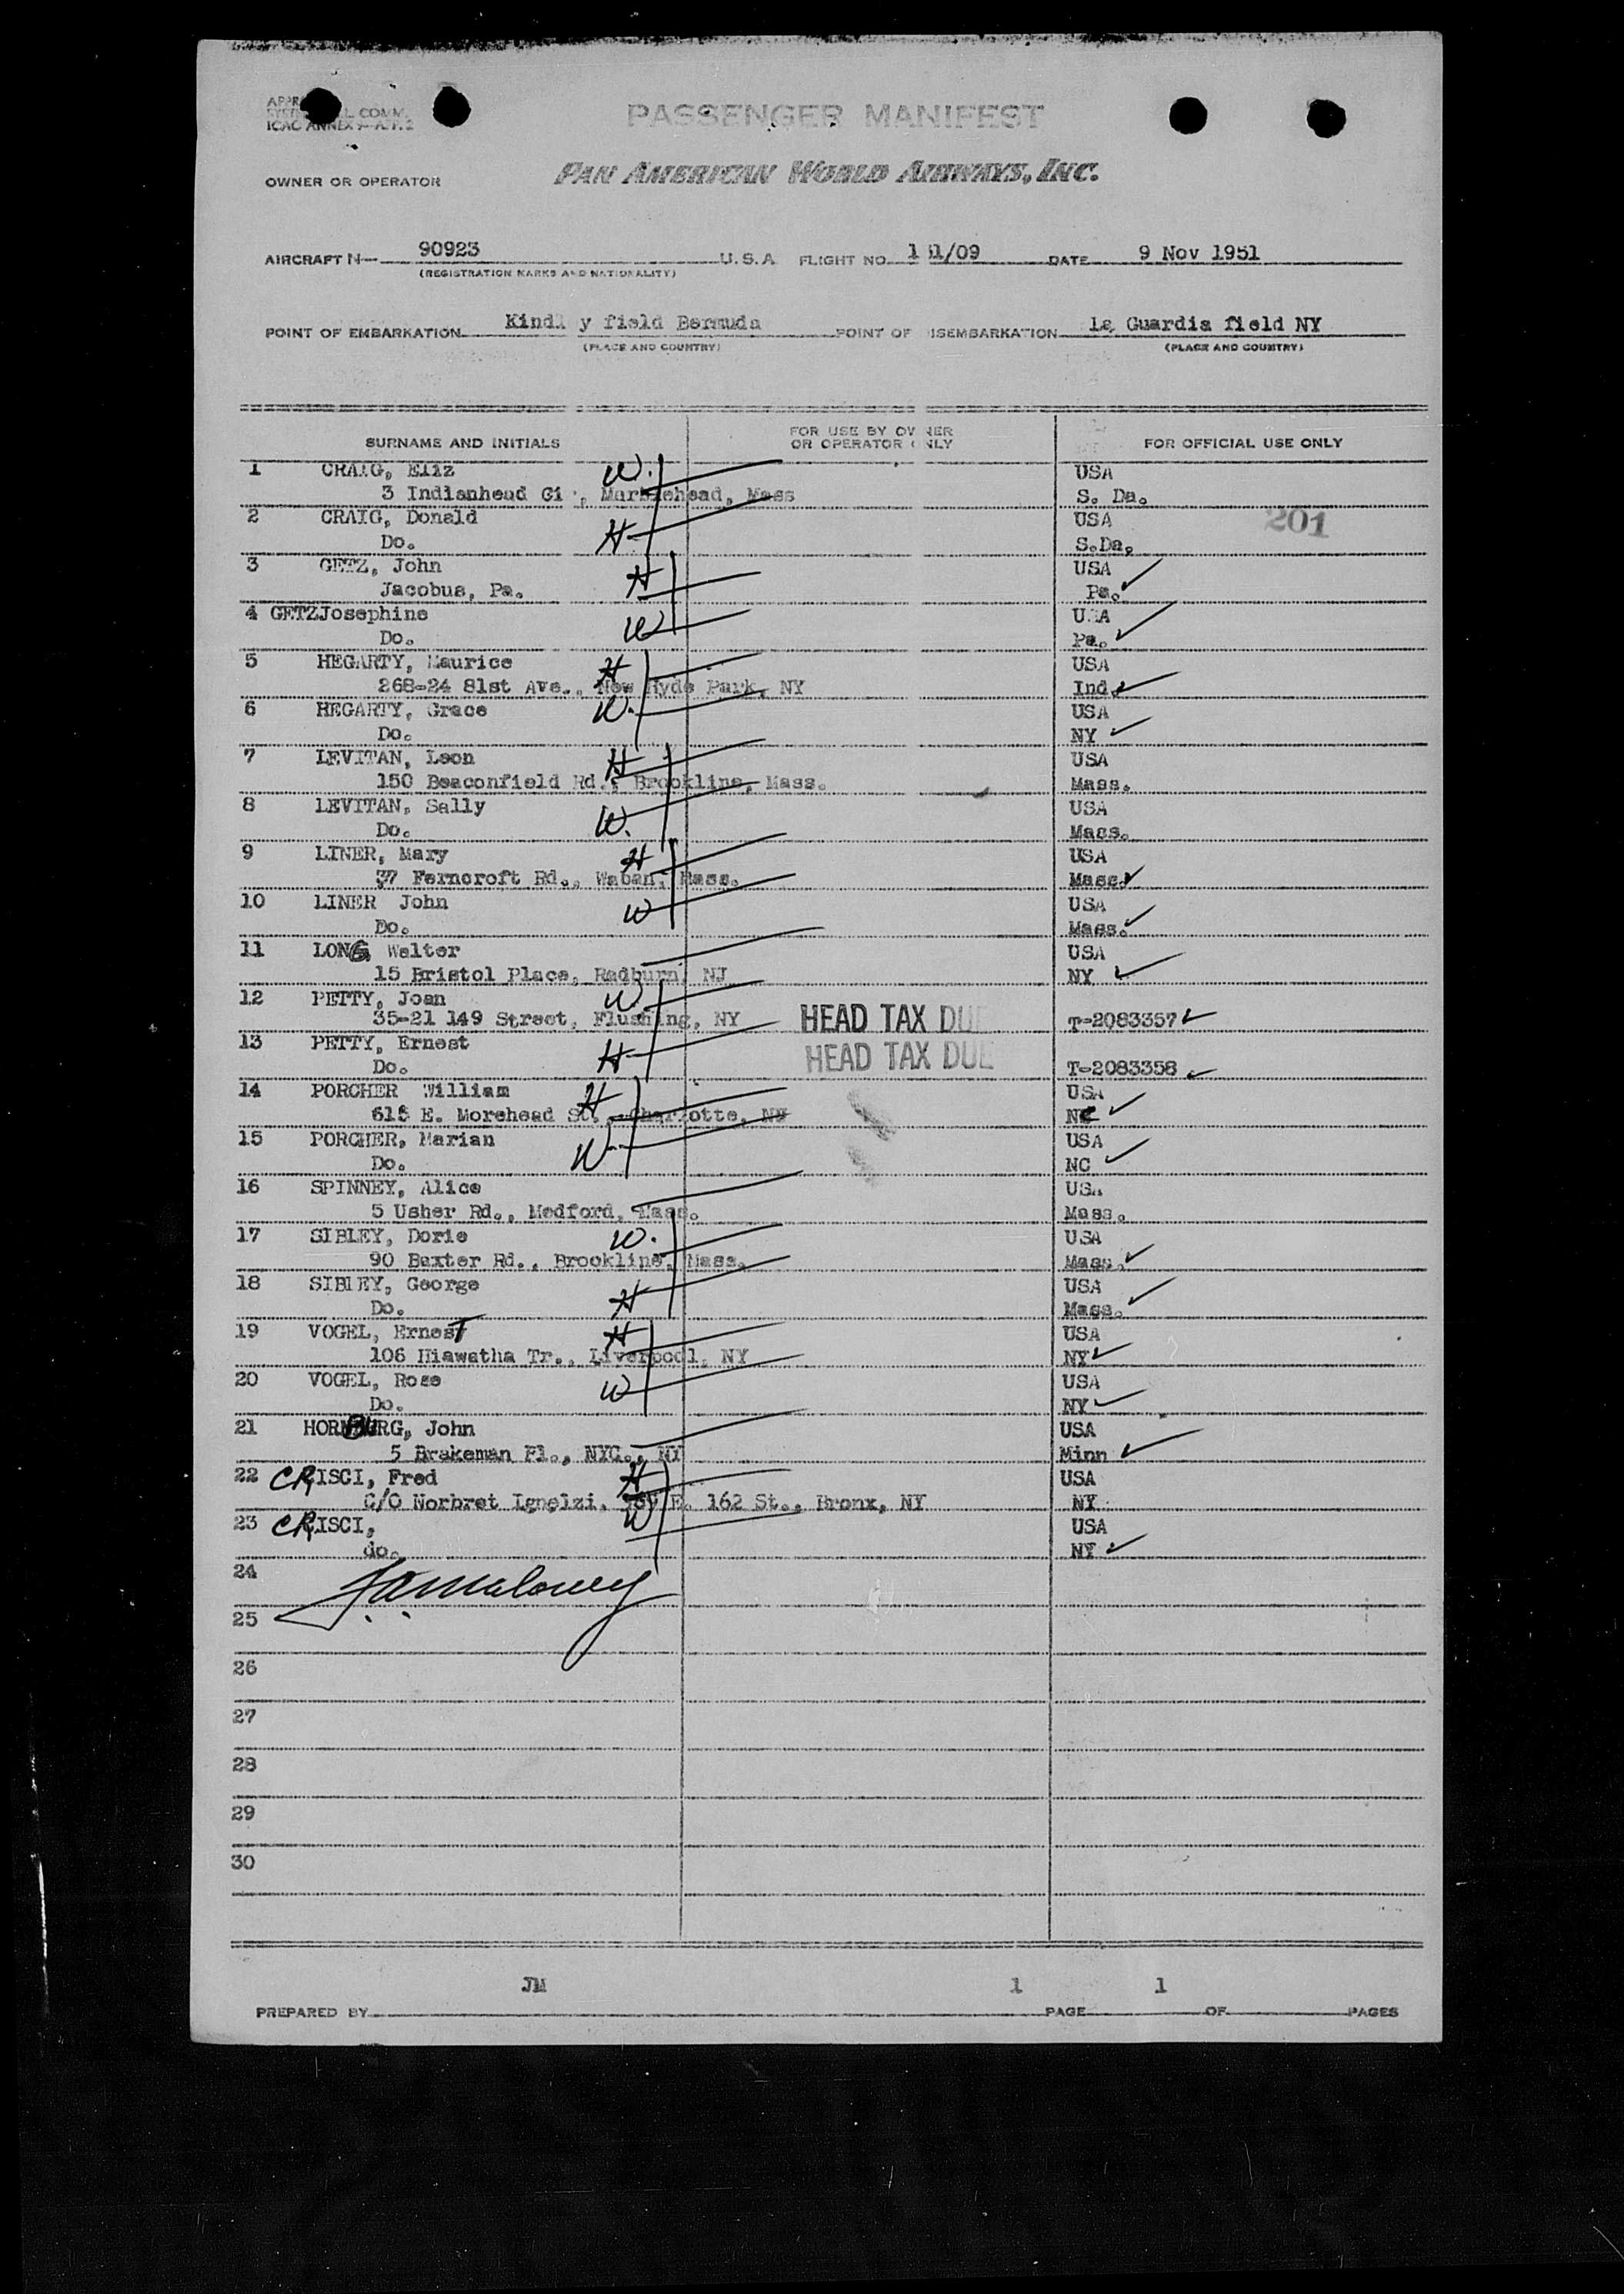 ICAO ANNEX 9-APP. 2
PASSENGER MANIFEST
OWNER OR OPERATOR PAN AMERICAN WORLD AIRWAYS, INC.
AIRCRAFT N— 90923 U.S.A FLIGHT NO. 1 1/09 DATE 9 Nov 1951
(REGISTRATION MARKS AND NATIONALITY)
POINT OF EMBARKATION Kindl y field Bermuda POINT OF ISEMBARKATION la Guardia field NY
(PLACE AND COUNTRY) (PLACE AND COUNTRY)
SURNAME AND INITIALS FOR USE BY OWNER OR OPERATOR ONLY FOR OFFICIAL USE ONLY
1 CRAIG, Eliz W. USA
3 Indianhead Ci , Marblehead, Mass S. Da.
2 CRAIG, Donald USA 201
Do. H S.Da.
3 GETZ, John H USA
Jacobus, Pa. Pa.
4 GETZJosephine W U A
Do. Pa.
5 HEGARTY, Maurice H USA
268-24 81st Ave., New Hyde Park, NY Ind.
6 HEGARTY, Grace W. USA
Do. NY
7 LEVITAN, Leon H USA
150 Beaconfield Rd., Brookline, Mass. Mass.
8 LEVITAN, Sally W. USA
Do. Mass.
9 LINER, Mary H USA
37 Ferncroft Rd., Waban, Mass. Mass.
10 LINER John W USA
Do. Mass.
11 LONG, Walter USA
15 Bristol Place, Radburn, NJ NY
12 PETTY, Joan W.
35-21 149 Street, Flushing, NY HEAD TAX DUE T-2083357
13 PETTY, Ernest H HEAD TAX DUE
Do. T-2083358
14 PORCHER William H USA
615 E. Morehead St., Charlotte, NC
15 PORCHER, Marian W USA
Do. NC
16 SPINNEY, Alice USA
5 Usher Rd., Medford, Mass. Mass.
17 SIBLEY, Doris W. USA
90 Baxter Rd., Brookline, Mass. Mass.
18 SIBLEY, George H USA
Do. Mass.
19 VOGEL, Ernest H USA
106 Hiawatha Tr., Liverpool, NY NY
20 VOGEL, Rose W USA
Do. NY
21 HORNBURG, John USA
5 Brakeman Pl., NYC., NY Minn
22 CRISCI, Fred H USA
C/O Norbret Ignelzi, E. 162 St., Bronx, NY NY
23 CRISCI, W USA
do. NY
24
J.A. Maloney
25
26
27
28
29
30
JM 1 1
PREPARED BY PAGE OF PAGES